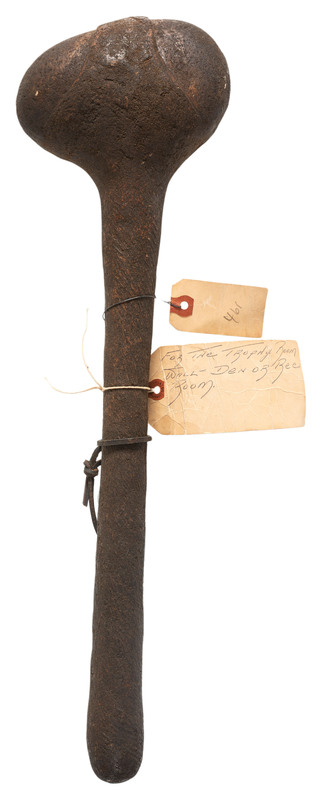 461
For The Trophy Room
Wall - Den or Rec
Room.